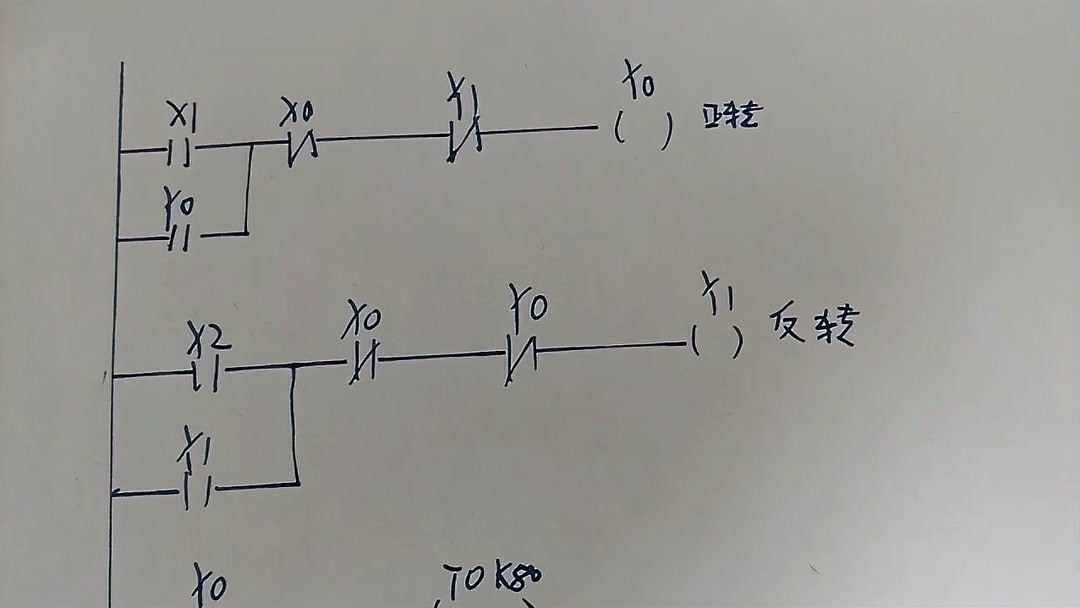 X1 X0 Y1 Y0 正转
Y0
X2 X0 Y0 Y1 反转
Y1
Y0 T0 K80